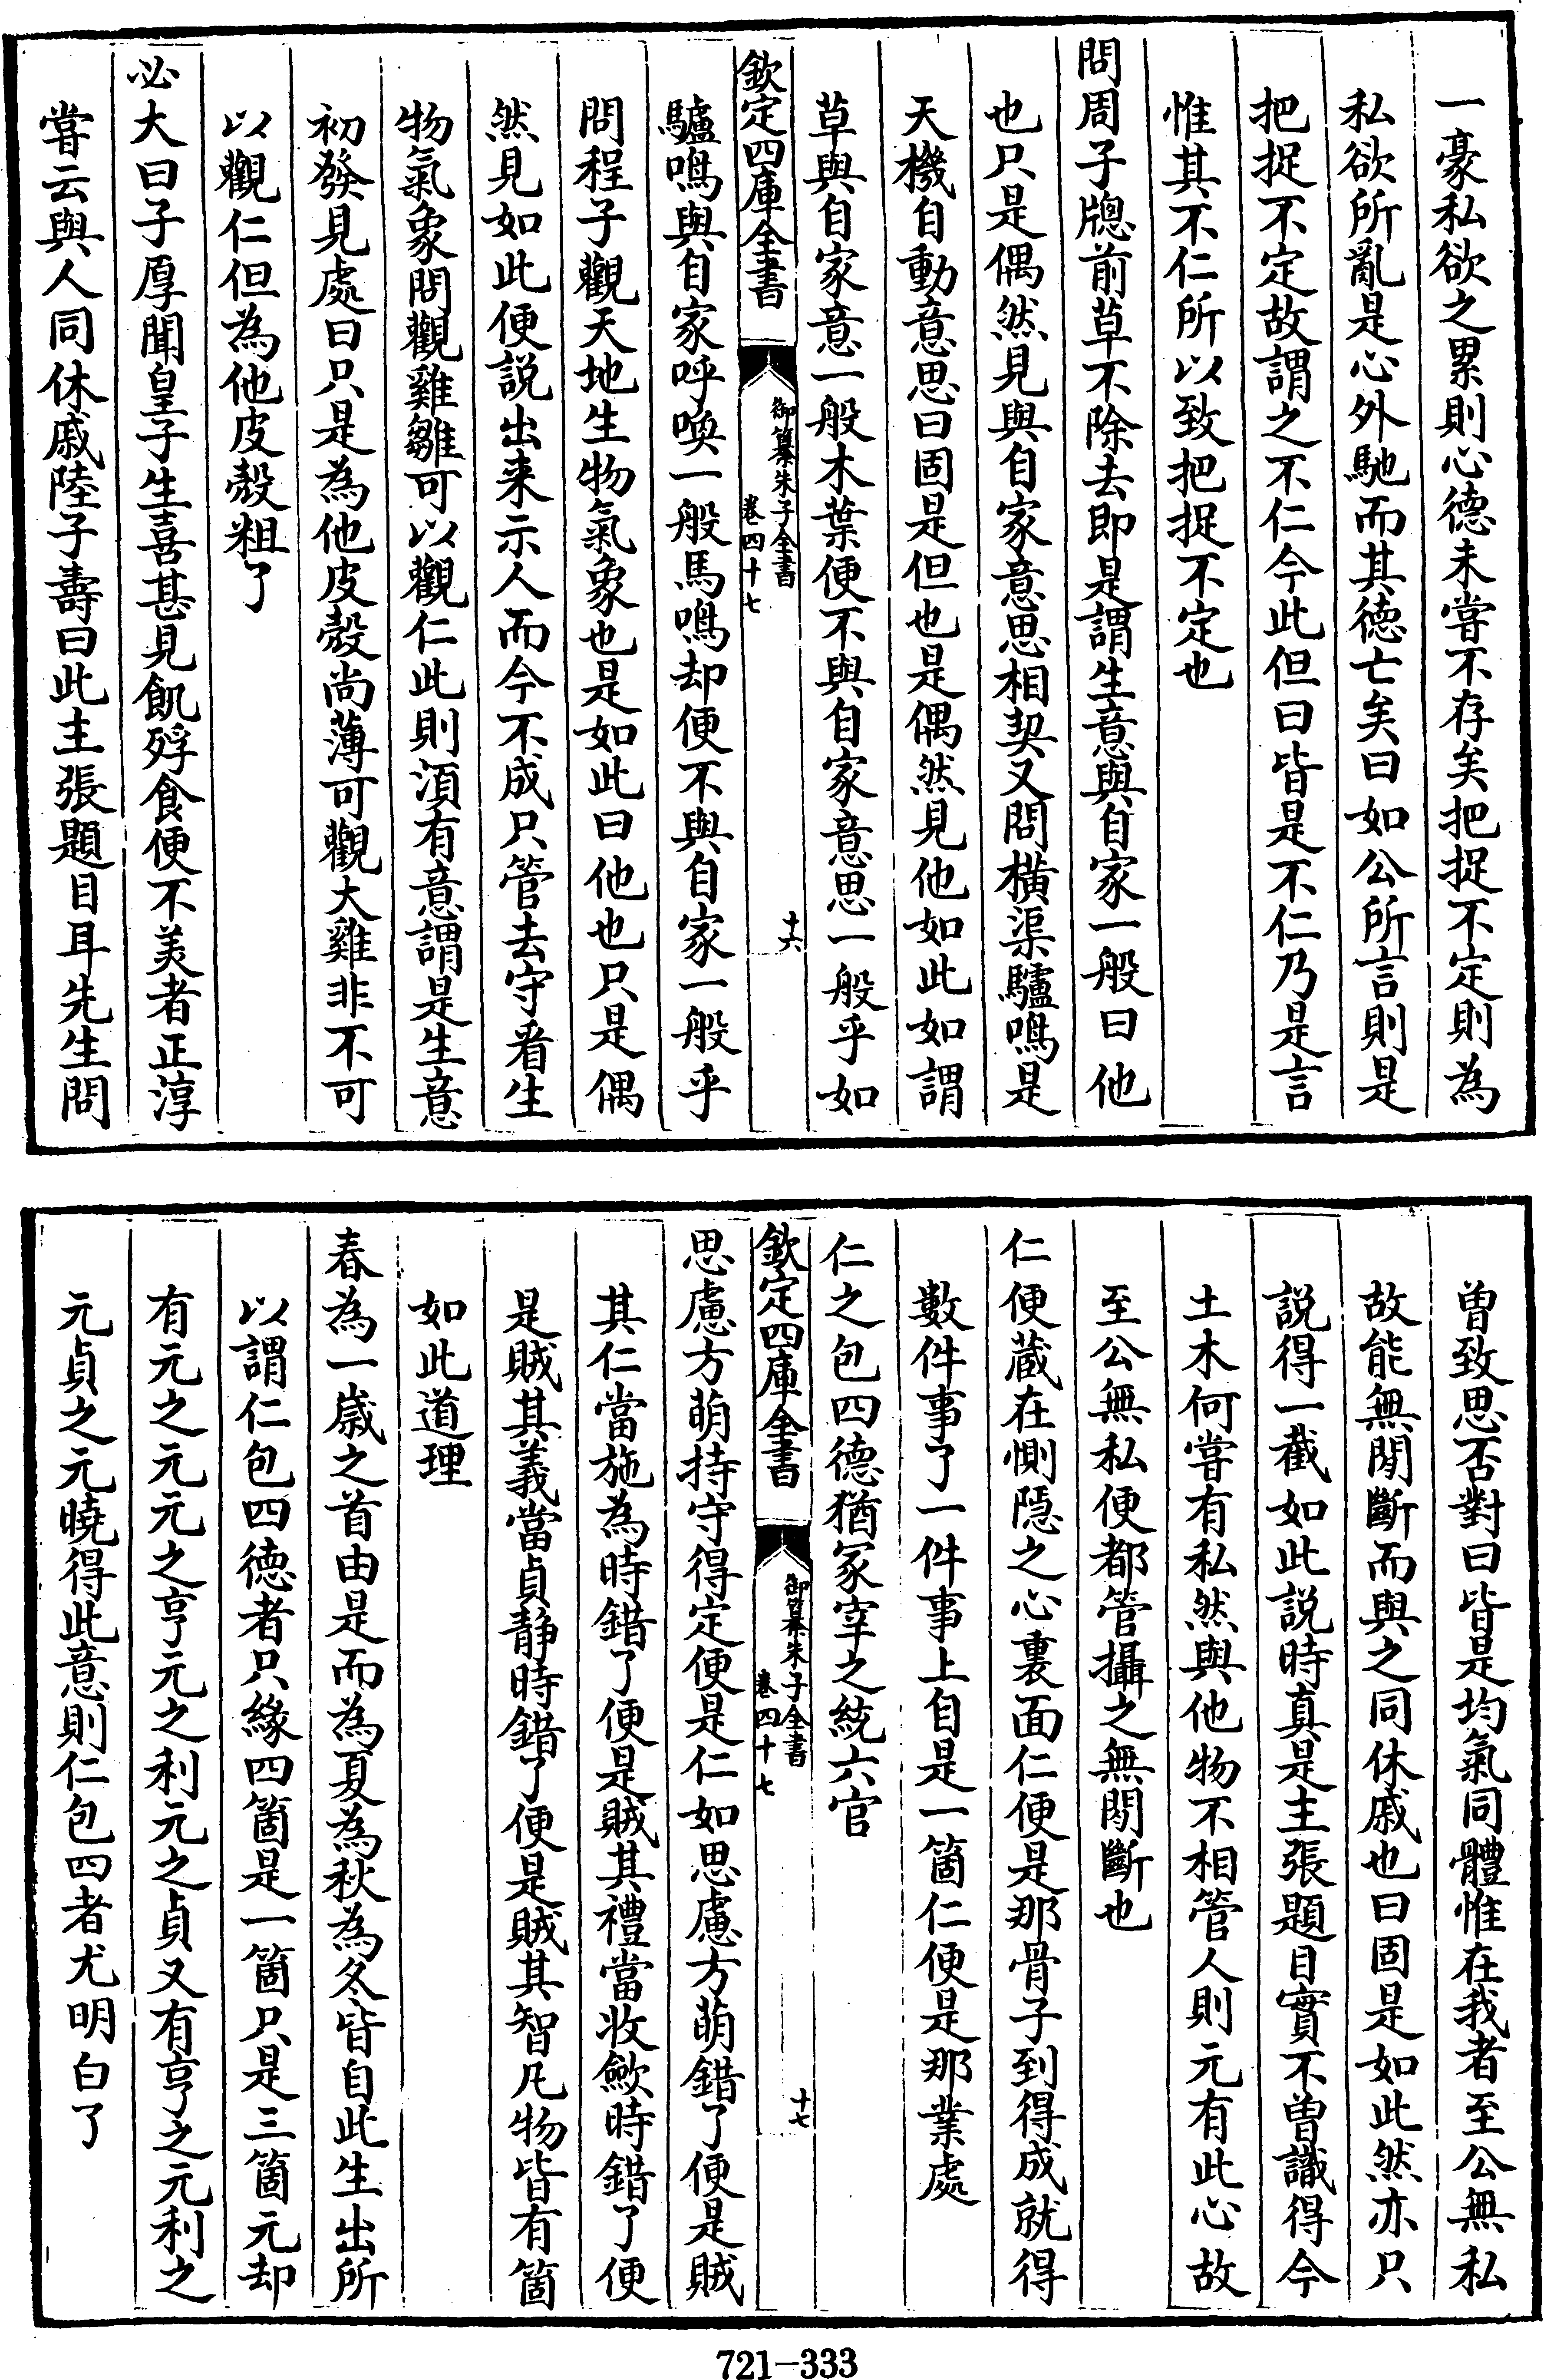 一豪私欲之累則心德未嘗不存矣把捉不定則為
私欲所亂是心外馳而其德亡矣曰如公所言則是
把捉不定故謂之不仁今此但曰皆是不仁乃是言
惟其不仁所以致把捉不定也
問周子牕前草不除去即是謂生意與自家一般曰他
也只是偶然見與自家意思相契又問橫渠驢鳴是
天機自動意思曰固是但也是偶然見他如此如謂
草與自家意一般木葉便不與自家意思一般乎如
欽定四庫全書
御纂朱子全書
卷四十七
十六
驢鳴與自家呼喚一般馬鳴却便不與自家一般乎
問程子觀天地生物氣象也是如此曰他也只是偶
然見如此便説出来示人而今不成只管去守看生
物氣象問觀雞雛可以觀仁此則須有意謂是生意
初發見處曰只是為他皮殼尚薄可觀大雞非不可
以觀仁但為他皮殼粗了
必大曰子厚聞皇子生喜甚見飢殍食便不美者正淳
嘗云與人同休戚陸子壽曰此主張題目耳先生問
曽致思否對曰皆是均氣同體惟在我者至公無私
故能無閒斷而與之同休戚也曰固是如此然亦只
説得一截如此説時真是主張題目實不曽識得今
土木何嘗有私然與他物不相管人則元有此心故
至公無私便都管攝之無閒斷也
仁便蔵在惻隱之心裏面仁便是那骨子到得成就得
數件事了一件事上自是一箇仁便是那業處
仁之包四德猶冢宰之統六官
欽定四庫全書
御纂朱子全書
卷四十七
十七
思慮方萌持守得定便是仁如思慮方萌錯了便是賊
其仁當施為時錯了便是賊其禮當收歛時錯了便
是賊其義當貞静時錯了便是賊其智凡物皆有箇
如此道理
春為一嵗之首由是而為夏為秋為冬皆自此生出所
以謂仁包四德者只緣四箇是一箇只是三箇元却
有元之元元之亨元之利元之貞又有亨之元利之
元貞之元曉得此意則仁包四者尤明白了
721-333